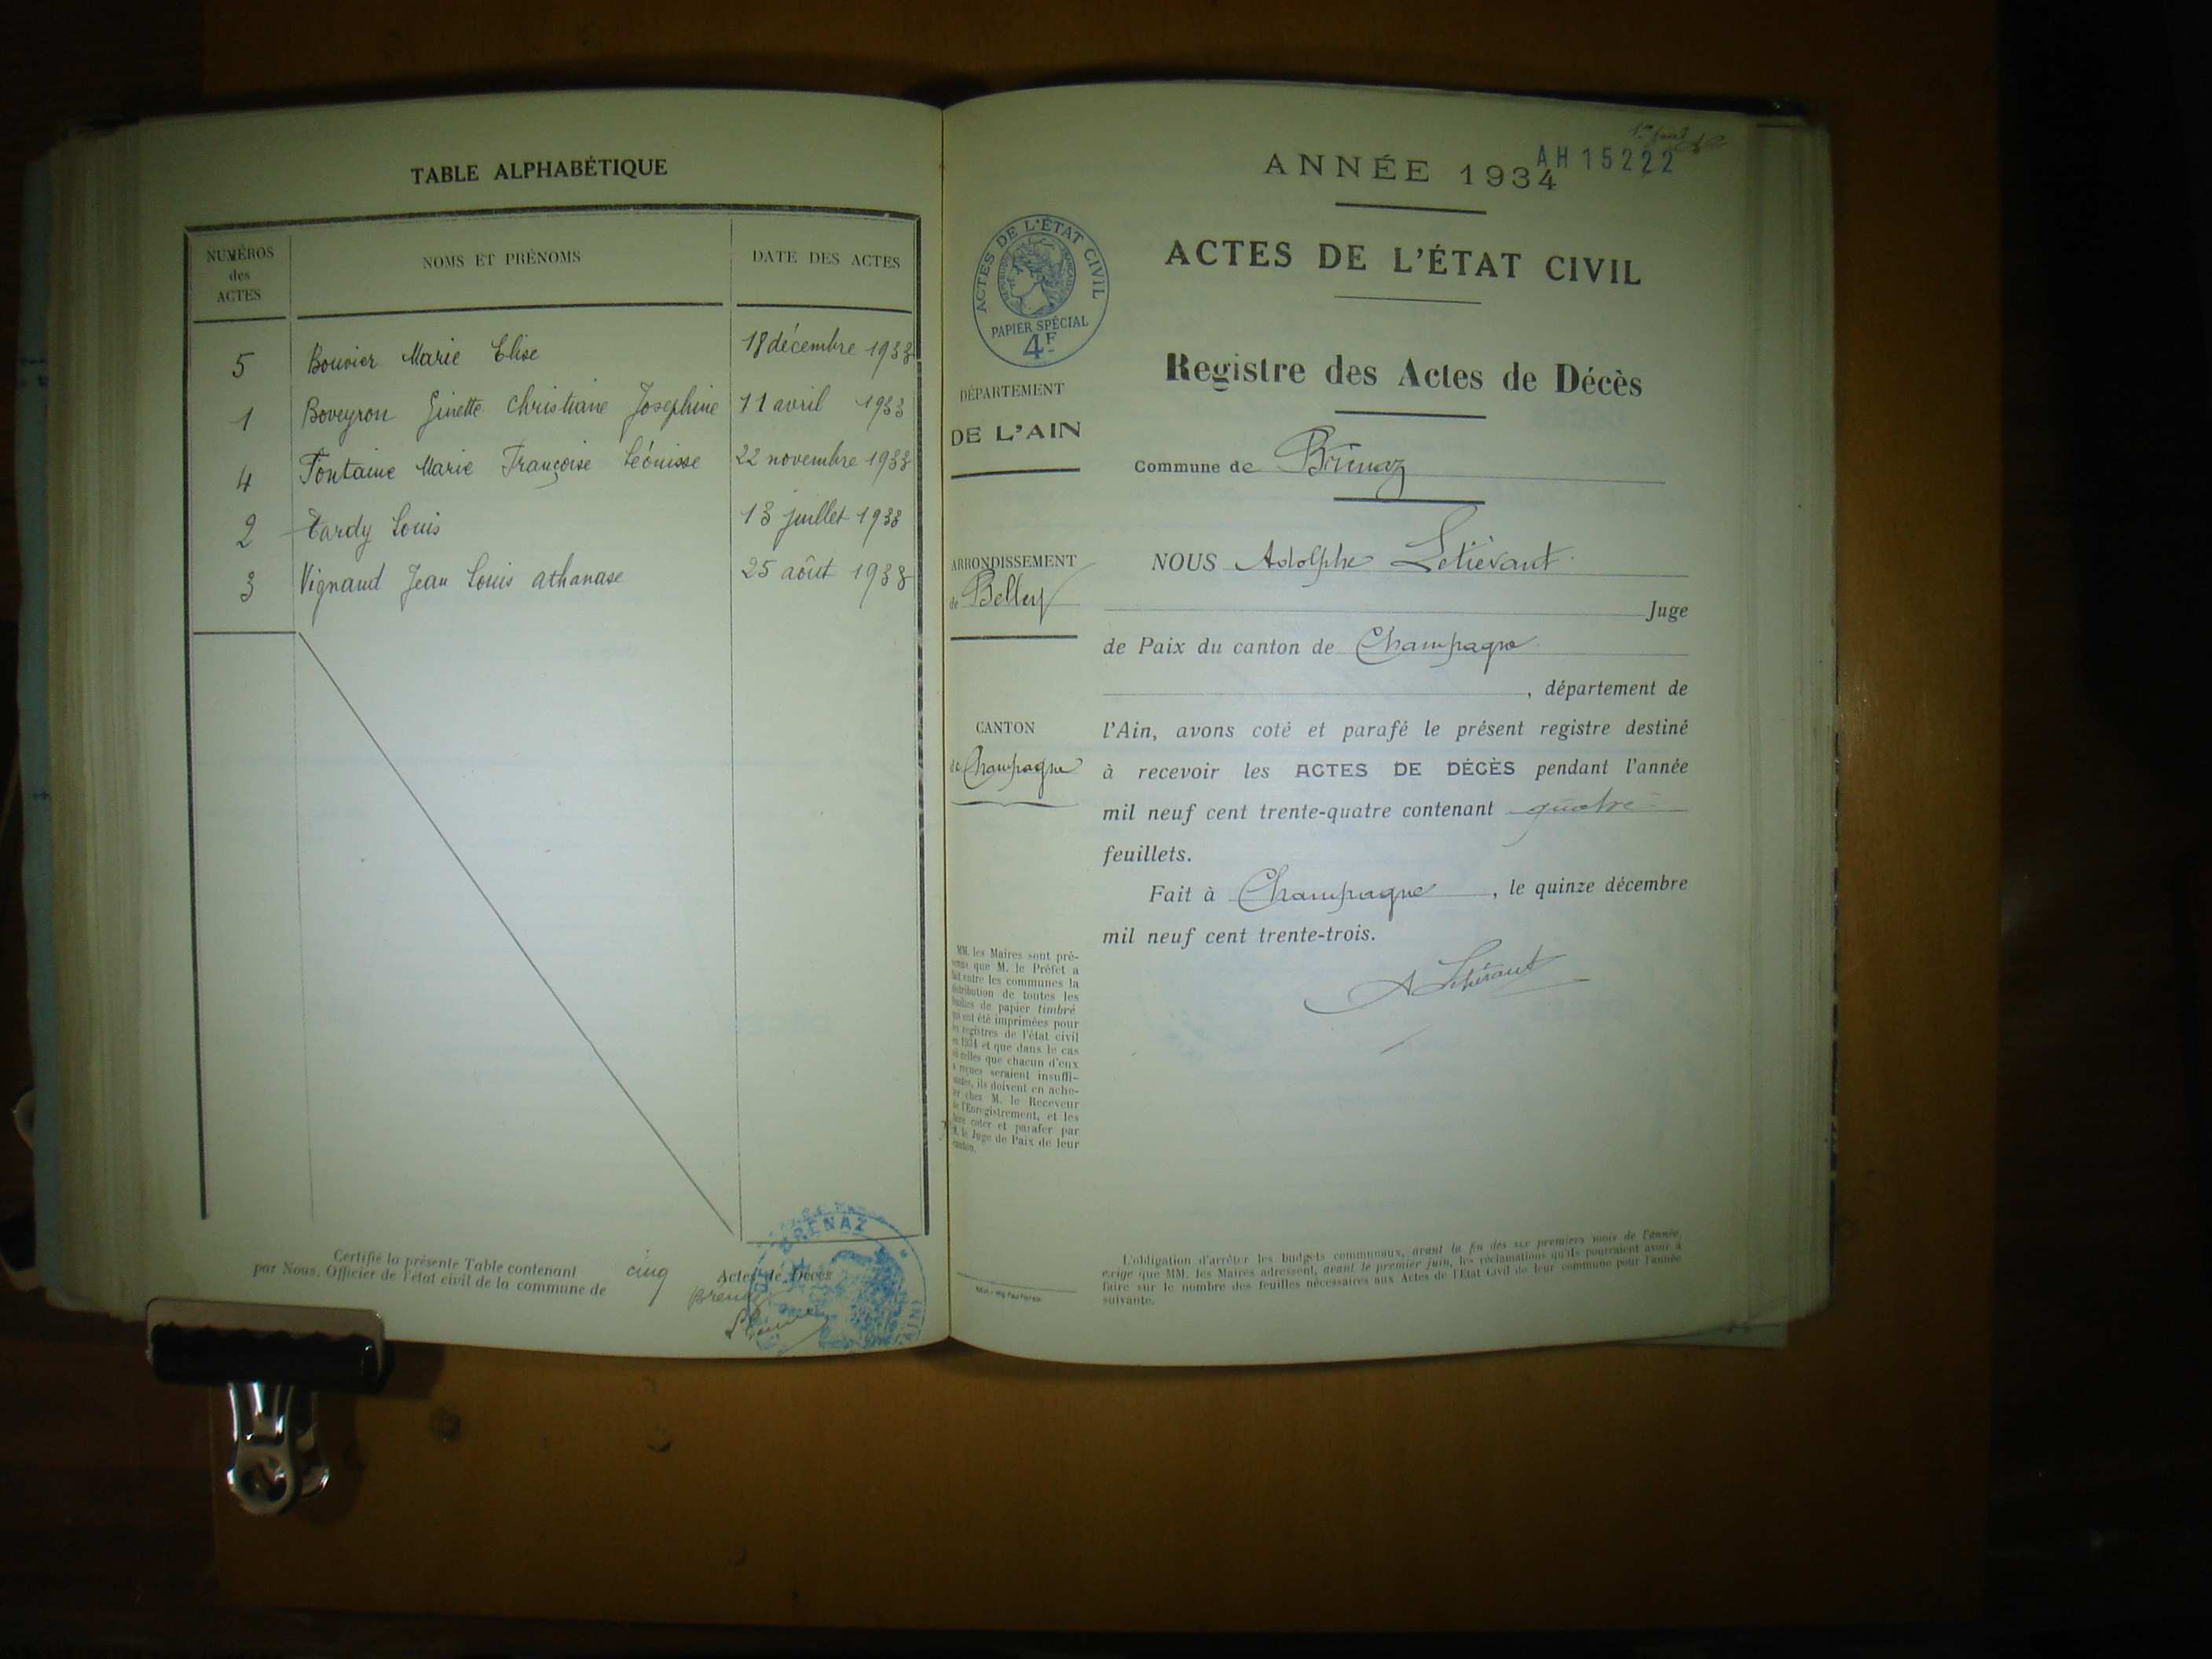 TABLE ALPHABÉTIQUE
NUMÉROS
des
ACTES
NOMS ET PRÉNOMS
DATE DES ACTES
5 Bouvier Marie Elise 18 décembre 1933
1 Boveyron Ginette Christiane Josephine 11 avril 1933
4 Fontaine Marie Françoise Léonisse 22 novembre 1933
2 Tardy Louis 13 juillet 1933
3 Vignaud Jean Louis athanase 25 août 1933
Certifié la présente Table contenant cinq Actes de Décès
par Nous, Officier de l'état civil de la commune de Brenaz
BRENAZ
AIN
AH 15222
ANNÉE 1934
ACTES DE L'ÉTAT CIVIL
PAPIER SPÉCIAL
4F
ACTES DE L'ÉTAT CIVIL
Registre des Actes de Décès
DÉPARTEMENT
DE L'AIN
Commune de Brénaz
ARRONDISSEMENT
de Belley
CANTON
de Champagne
NOUS Adolphe Letiévant
Juge
de Paix du canton de Champagne
, département de
l'Ain, avons coté et parafé le présent registre destiné
à recevoir les ACTES DE DÉCÈS pendant l'année
mil neuf cent trente-quatre contenant quatre
feuillets.
Fait à Champagne, le quinze décembre
mil neuf cent trente-trois.
A Letiévant
MM. les Maires sont pré-
venus que M. le Préfet a
fait entre les communes la
distribution de toutes les
feuilles de papier timbré
qui ont été imprimées pour
les registres de l'état civil
en 1934 et que dans le cas
où celles que chacun d'eux
a reçues seraient insuffi-
santes, ils doivent en ache-
ter chez M. le Receveur
de l'Enregistrement, et les
faire coter et parafer par
M. le Juge de Paix de leur
canton.
L'obligation d'arrêter les budgets communaux, avant la fin des six premiers mois de l'année,
exige que MM. les Maires adressent, avant le premier juin, les réclamations qu'ils pourraient avoir à
faire sur le nombre des feuilles nécessaires aux Actes de l'Etat Civil de leur commune pour l'année
suivante.